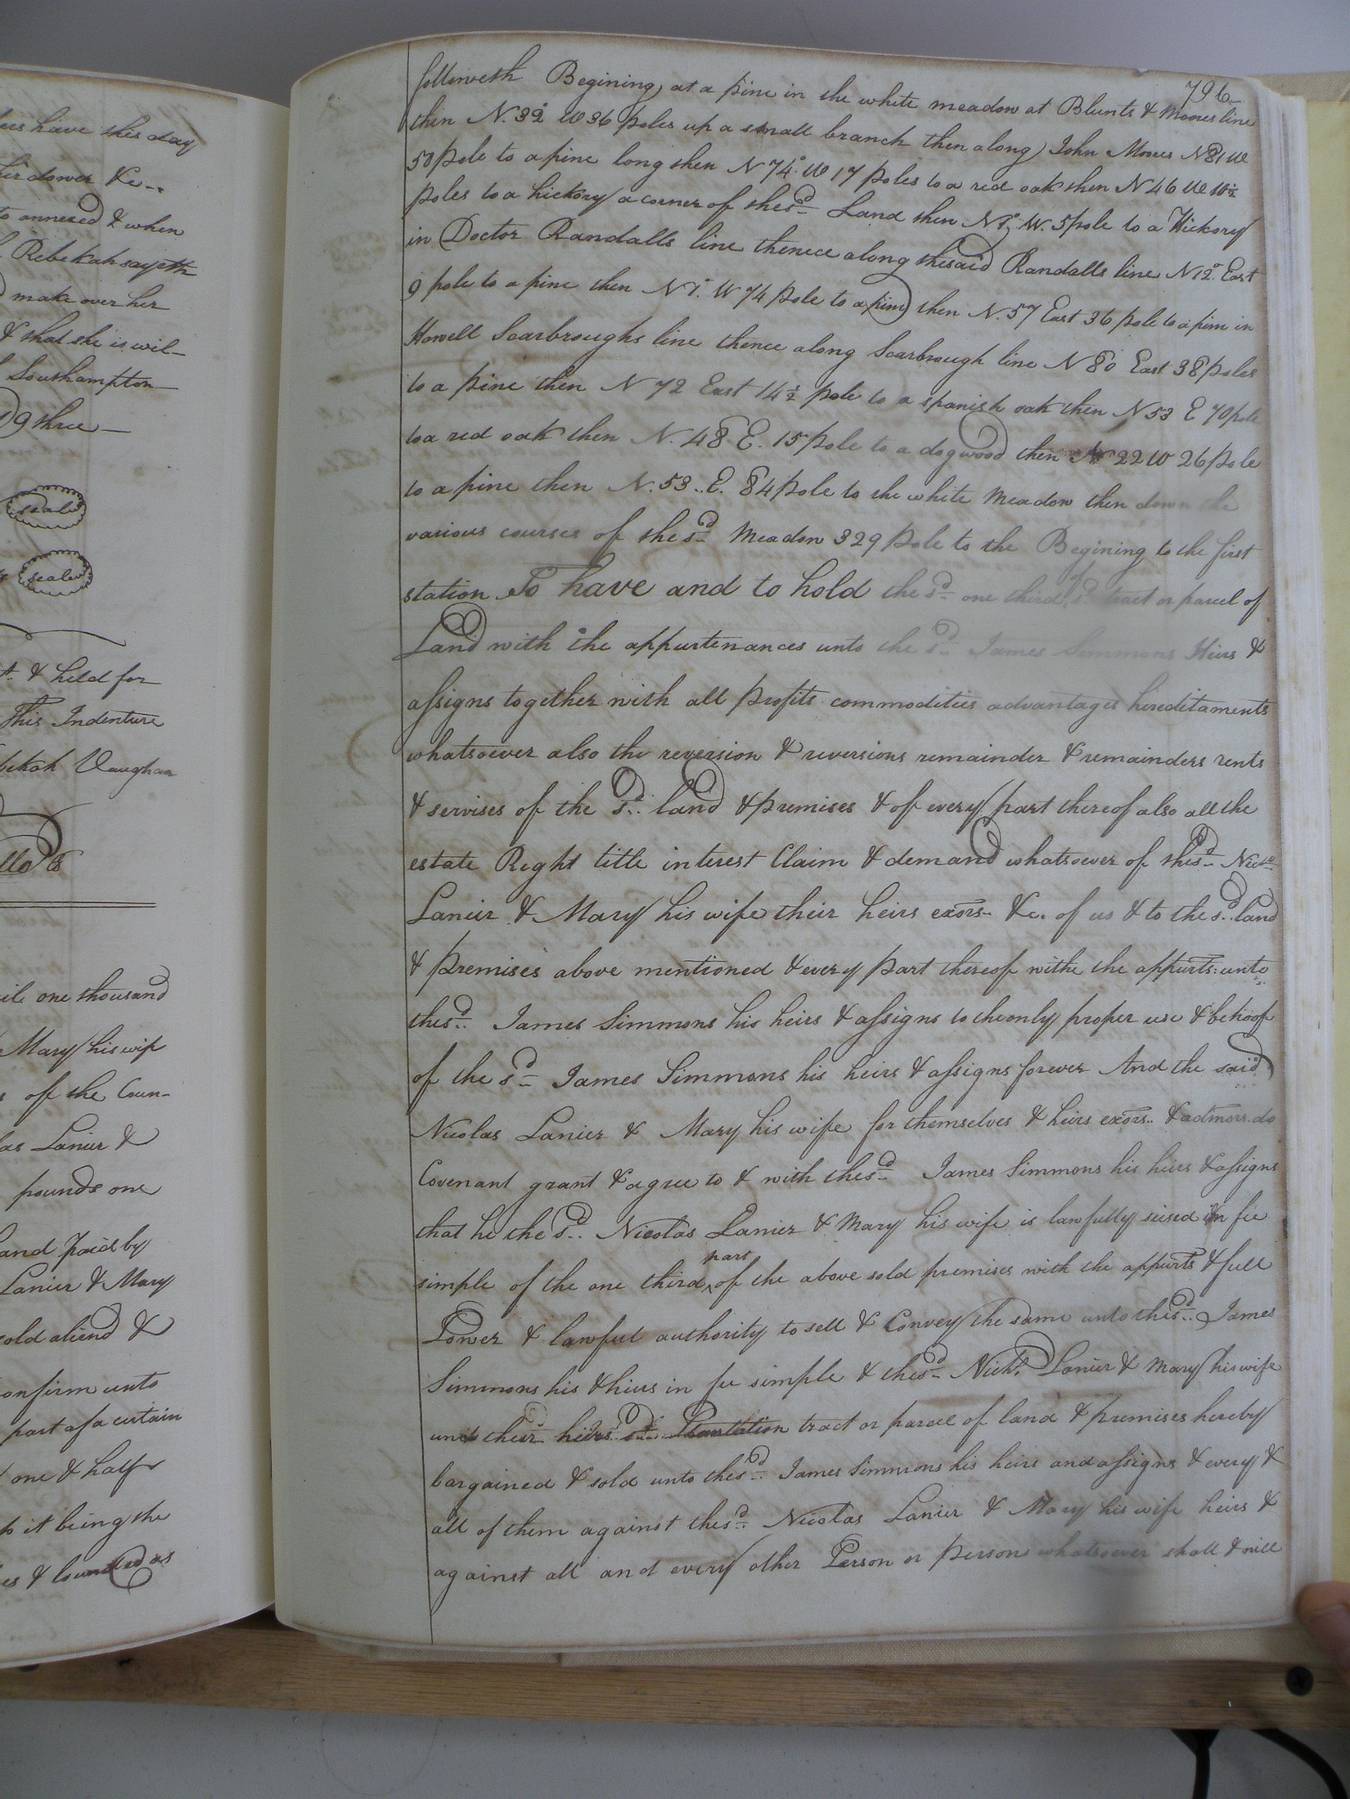 ees have this day
eir dower &c--
to annexed & when
Rebekah sayeth
make over her
& that she is wil-
Southampton
9 three
seale
seale
& held for
This Indenture
bekah Vaughan
ile one thousand
Mary his wife
of the Coun-
las Lanier &
pounds one
and paid by
Lanier & Mary
sold aliend &
onfirm unto
part of a certain
one & half
it being the
es & bounded as
796
followeth Begining at a pine in the white meadow at Blunts & Moores line
then N. 32° W 36 poles up a small branch then along John Moores N 81 W
58 pole to a pine long then N 74° W 17 poles to a red oak then N 46 W 10½
poles to a hickory a corner of the sd. Land then N 8° W. 5 pole to a Hickory
in Doctor Randalls line thence along the said Randalls line N 12° East
9 pole to a pine then N 1° W 74 pole to a pine then N. 57 East 36 pole to a pine in
Howell Scarbroughs line thence along Scarbrough line N 80 East 38 poles
to a pine then N 72 East 14½ pole to a spanish oak then N 53 E 70 pole
to a red oak then N. 48 E. 15 pole to a dogwood then N 22 W 26 pole
to a pine then N. 53.. E. 84 pole to the white Meadow then down the
various courses of the sd. Meadow 329 pole to the Begining to the first
station To have and to hold the sd. one third of sd tract or parcel of
Land with the appurtenances unto the sd. James Simmons Heirs &
assigns together with all profits commodities advantages hireditaments
whatsoever also the reversion & reversions remainder & remainders rents
& servises of the sd.. land & premises & of every part thereof also all the
estate Right title interest Claim & demand whatsoever of the sd.. Nicho
Lanier & Mary his wife their heirs exors- &c. of us & to the sd. land
& premises above mentioned & every part thereof withe the appurts: unto
the sd.. James Simmons his heirs & assigns to the only proper use & behoof
of the sd. James Simmons his heirs & assigns forever And the said
Nicolas Lanier & Mary his wife for themselves & heirs exors.. & admors. do
Covenant grant & agree to & with the sd. James Simmons his heirs & assigns
that he the sd.. Nicolas Lanier & Mary his wife is lawfully seised in fee
part
simple of the one third ^ of the above sold premises with the appurts & full
Power & lawful authority to sell & Convey the same unto the sd.. James
Simmons his & hiers in fee simple & the sd. Nichs. Lanier & Mary his wife
and their heirs sd. Plantation tract or parcel of land & premises hereby
bargained & sold unto the sd.. James Simmons his heirs and assigns & every &
all of them against the sd.. Nicolas Lanier & Mary his wife heirs &
against all and every other Person or persons whatsoever shall & will